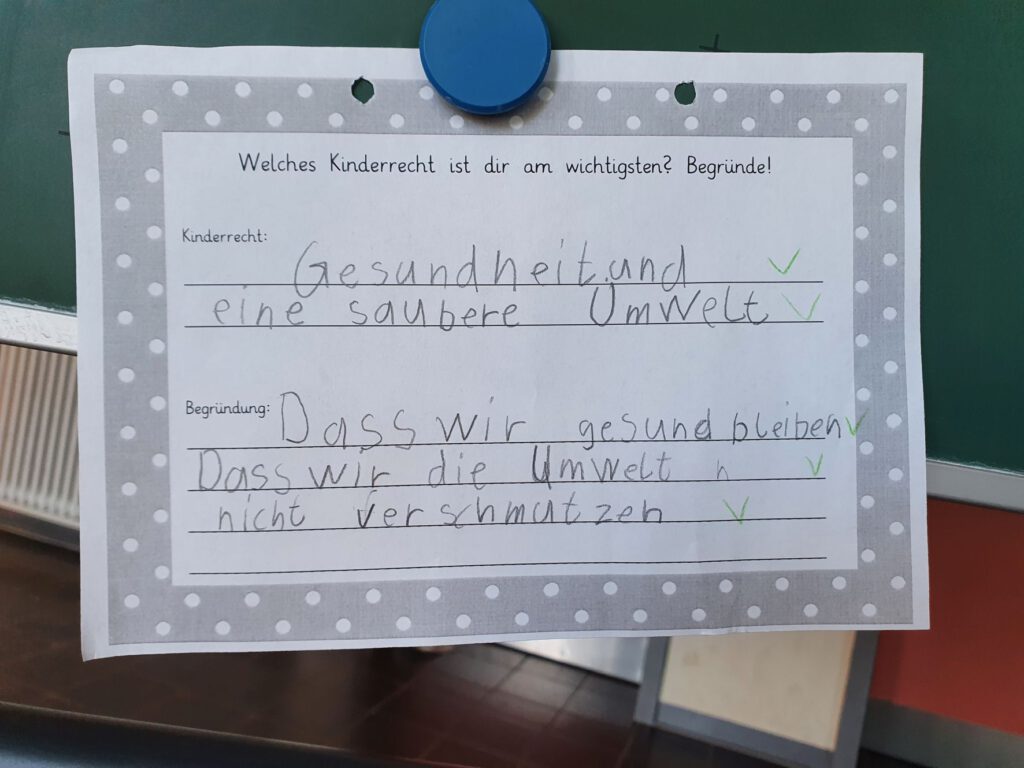 Welches Kinderrecht ist dir am wichtigsten? Begründe!
Kinderrecht:
Gesundheit und
eine saubere Umwelt
Begründung: Dass wir gesund bleiben
Dass wir die Umwelt n
nicht verschmutzen